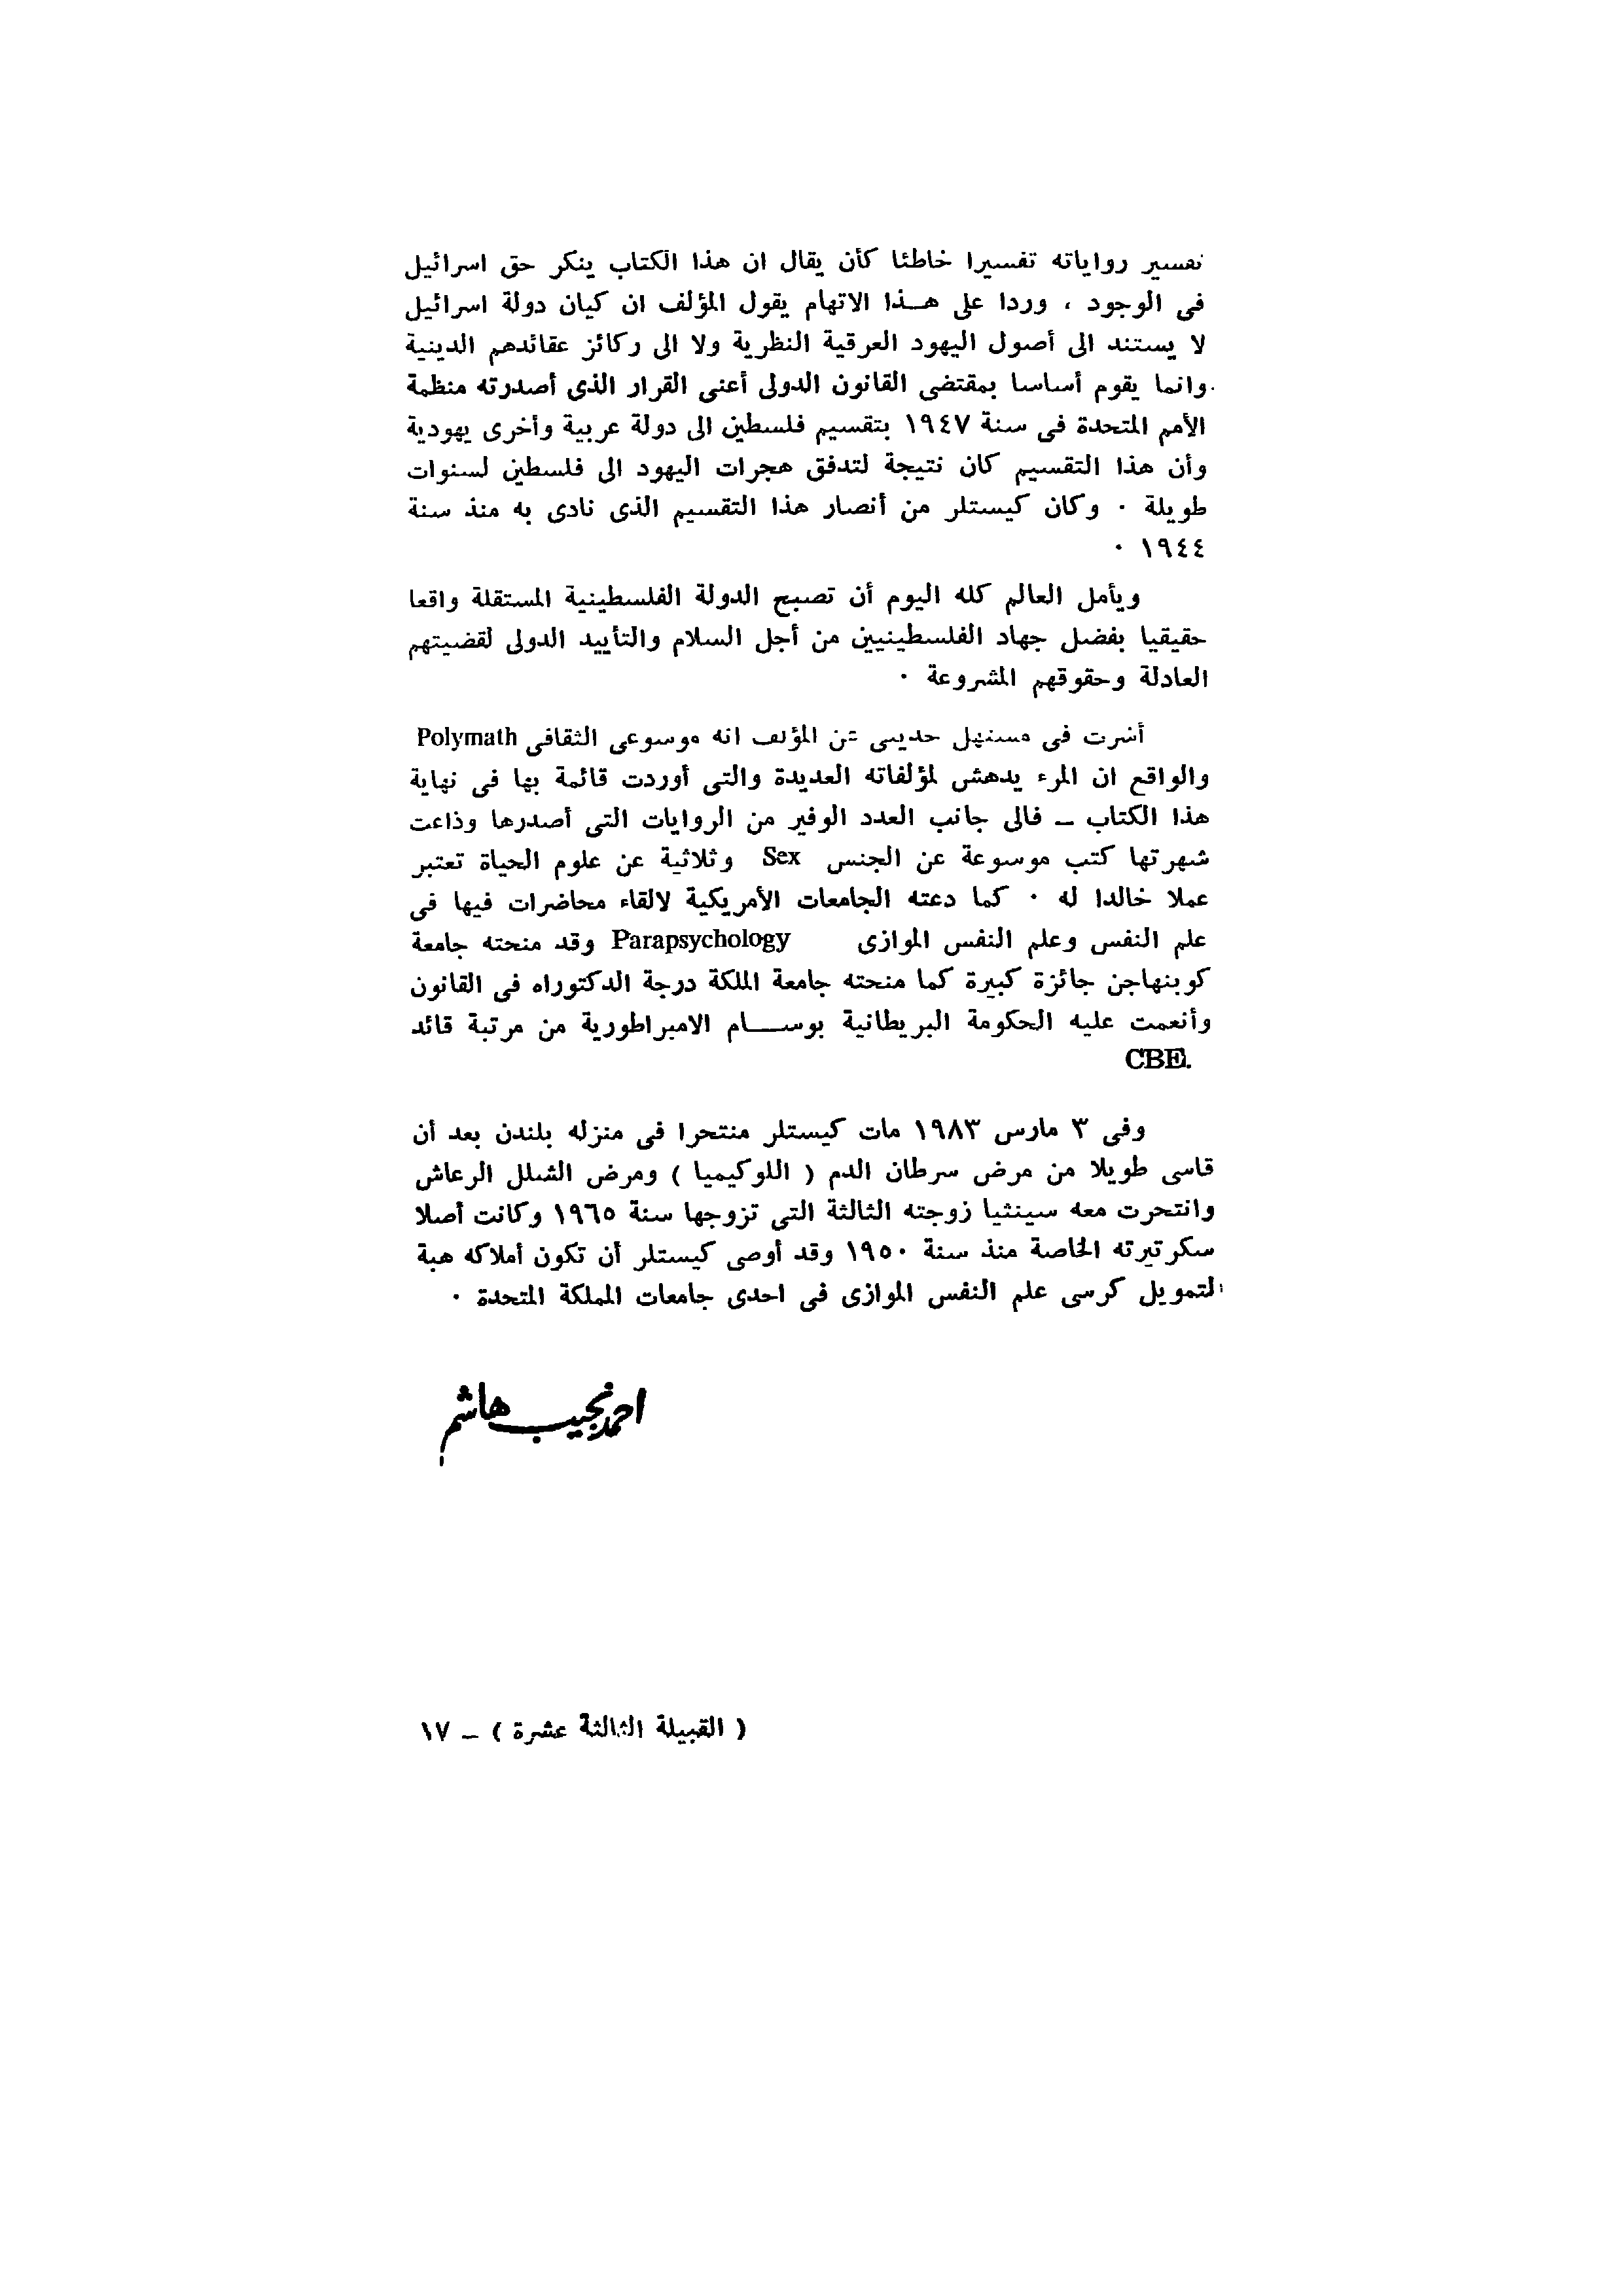 تفسير رواياته تفسيرا خاطئا كأن يقال ان هذا الكتاب ينكر حق اسرائيل
فى الوجود ، وردا على هـــذا الاتهام يقول المؤلف ان كيان دولة اسرائيل
لا يستند الى أصول اليهود العرقية النظرية ولا الى ركائز عقائدهم الدينية
وانما يقوم أساسا بمقتضى القانون الدولى أعنى القرار الذى أصدرته منظمة
الأمم المتحدة فى سنة ١٩٤٧ بتقسيم فلسطين الى دولة عربية وأخرى يهودية
وأن هذا التقسيم كان نتيجة لتدفق هجرات اليهود الى فلسطين لسنوات
طويلة ٠ وكان كيستلر من أنصار هذا التقسيم الذى نادى به منذ سنة
١٩٤٤ ٠
ويأمل العالم كله اليوم أن تصبح الدولة الفلسطينية المستقلة واقعا
حقيقيا بفضل جهاد الفلسطينيين من أجل السلام والتأييد الدولى لقضيتهم
العادلة وحقوقهم المشروعة ٠
أشرت فى مستهل حديثى عن المؤلف انه موسوعى الثقافى Polymath
والواقع ان المرء يدهش لمؤلفاته العديدة والتى أوردت قائمة بها فى نهاية
هذا الكتاب ــ فالى جانب العدد الوفير من الروايات التى أصدرها وذاعت
شهرتها كتب موسوعة عن الجنس Sex وثلاثية عن علوم الحياة تعتبر
عملا خالدا له ٠ كما دعته الجامعات الأمريكية لالقاء محاضرات فيها فى
علم النفس وعلم النفس الموازى Parapsychology وقد منحته جامعة
كوبنهاجن جائزة كبيرة كما منحته جامعة الملكة درجة الدكتوراه فى القانون
وأنعمت عليه الحكومة البريطانية بوســـام الامبراطورية من مرتبة قائد
CBE.
وفى ٣ مارس ١٩٨٣ مات كيستلر منتحرا فى منزله بلندن بعد أن
قاسى طويلا من مرض سرطان الدم ( اللوكيميا ) ومرض الشلل الرعاش
وانتحرت معه سينثيا زوجته الثالثة التى تزوجها سنة ١٩٦٥ وكانت أصلا
سكرتيرته الخاصة منذ سنة ١٩٥٠ وقد أوصى كيستلر أن تكون أملاكه هبة
لتمويل كرسى علم النفس الموازى فى احدى جامعات المملكة المتحدة ٠
احمد نجيب هاشم
( القبيلة الثالثة عشرة ) ــ ١٧